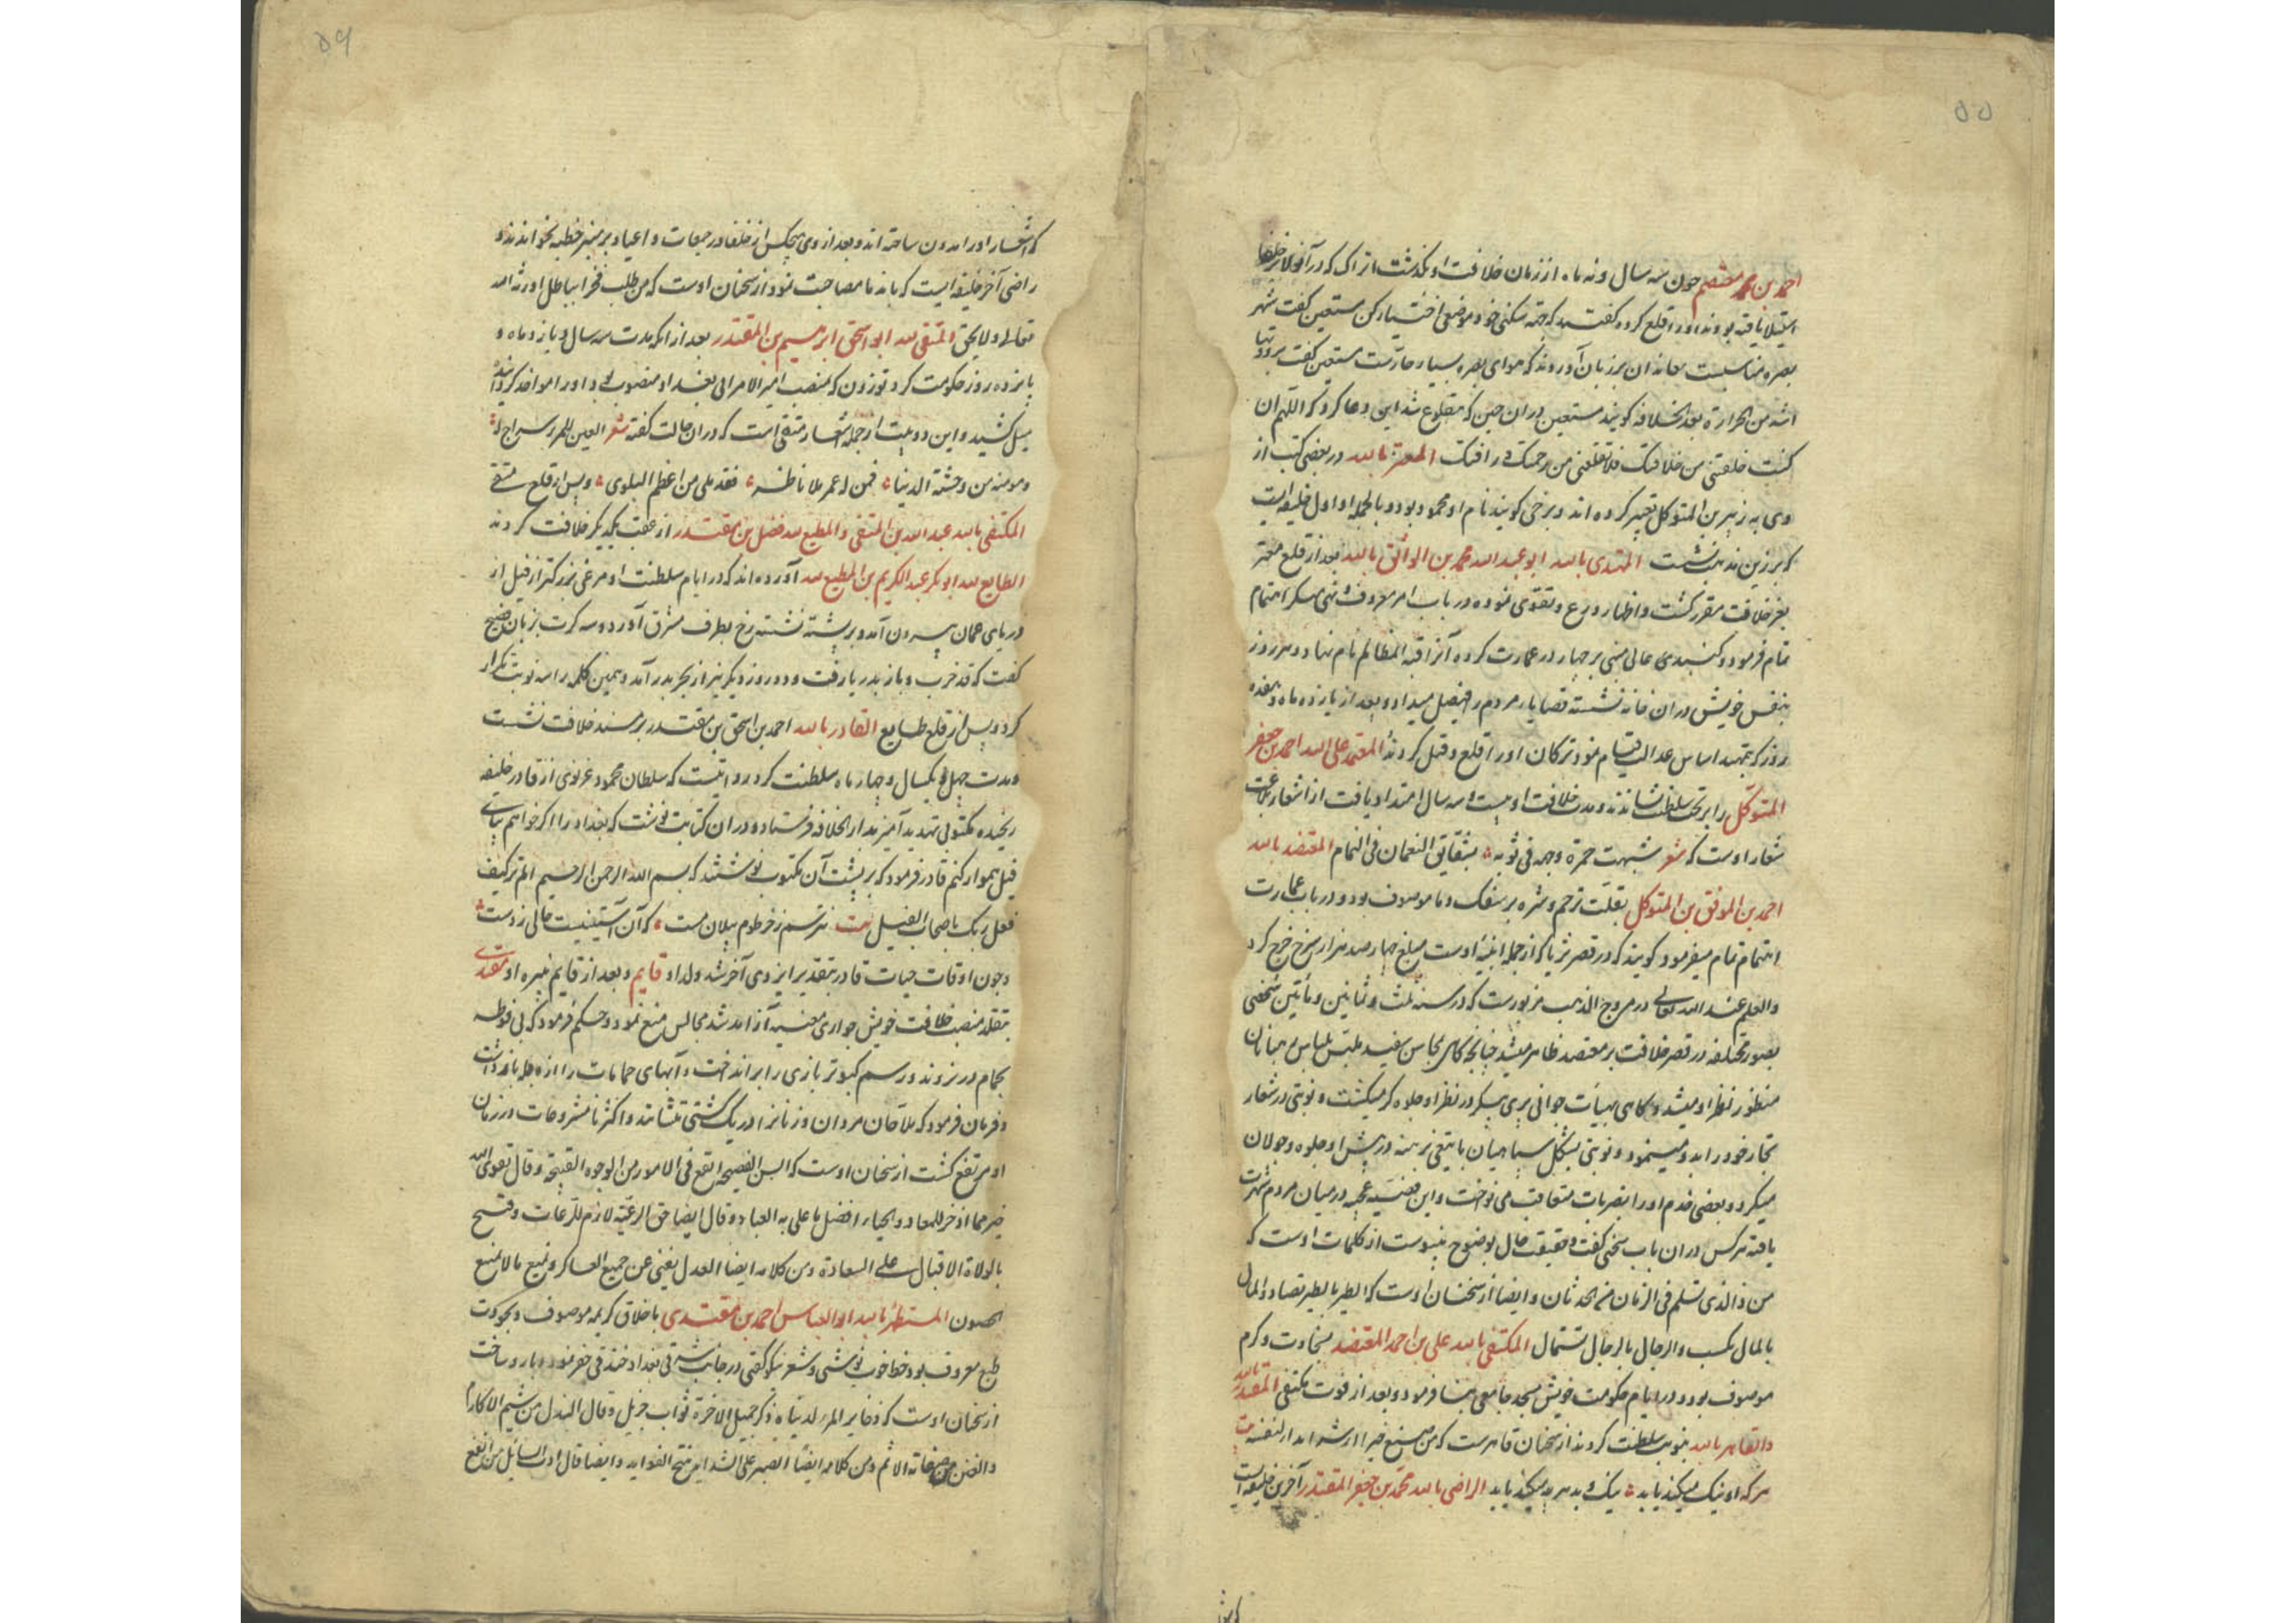 ۵۵
احمد بن محمد معتصم چون سه سال و نه ماه از زمان خلافت او بگذشت اتراک که در آن ولا بر خلفا
استیلا یافته بودند او را قلع کرده گفتند که جهة سکنی خود موضعی اختیار کن مستعین گفت شهر
بصره مناسبست معاندان بر زبان آوردند که هوای بصره بسیار حارّست مستعین گفت برودتها
اشد من الحرارة بعد الخلافه گویند مستعین دران حین که مقلوع شد این دعا کرد که اللهم ان
کنت خلعتنی من خلافتک فلا تقلعنی من رحمتک و رافتک المعتز بالله در بعضی کتب از
وی به زبیر بن المتوکل تعبیر کرده اند و برخی گویند نام او محمود بود و بالجمله او اول خلیفه ایست
که بر زین مذهب نشست المهتدی بالله ابو عبد الله محمد بن الواثق بالله بعد از قلع معتز
بعز خلافت مقرر گشت و اظهار ورع و تقوی نموده در باب امر معروف و نهی منکر اهتمام
تمام فرمود و گنبدی عالی مبنی بر چهار در عمارت کرده آنرا قبة المظالم نام نهاد و هر روز
بنفس خویش دران خانه نشسته قضایا مردم را فیصل میداد و بعد از یازده ماه و هفده
روز که بتمهید اساس عدالت قیام نمود ترکان او را قلع و قتل کردند المعتمد علی الله احمد بن جعفر
المتوکل را بر تخت سلطنت نشاندند و مدت خلافت او بیست و سه سال امتداد یافت از اشعار بلاغت
شعار اوست که شعر شبهت حمرة وجهه فی ثوبه بشقایق النعمان فی النمام المعتضد بالله
احمد بن الموفق بن المتوکل بقلّت ترحم و شره بر سفک دما موصوف بود و در باب عمارت
اهتمام تمام میفرمود گویند که در قصر ثریا که از جمله ابنیهٔ اوست مبلغ چهار صد هزار سرخ خرج کرد
والعلم عند الله تعالی در مروج الذهب مزبورست که در سنه ثلث و ثمانین و مأتین شخصی
بصور مختلفه در قصر خلافت بر معتضد ظاهر میشد چنانچه گاهی بمحاسن سفید ملتبس بلباس رهبانان
منظور نظر او میشد و گاهی بهیأت جوانی پری پیکر در نظر او جلوه گر میگشت و نوبتی در شعار
تجار خود را بدو مینمود و نوبتی بشکل سپاهیان با تیغی برهنه در پیش او جلوه و جولان
میکرد و بعضی خدم او را بضربات متعاقب می نواخت و این قضیه عجیبه درمیان مردم شهرت
یافته هر کس دران باب سخنی گفت و حقیقت حال بوضوح نپیوست از کلمات اوست که
من ذا الذی تسلم فی الزمان من الحدثان و ایضا از سخنان اوست که الطیر بالطیر تصاد و المال
بالمال یکسب و الرجال بالرجال تستمال المکتفی بالله علی بن احمد المعتضد بسخاوت و کرم
موصوف بود و در ایام حکومت خویش مسجد جامعی بنا فرمود و بعد از فوت مکتفی المقتدر بالله
والقاهر بالله بنوبت سلطنت کردند از سخنان قاهرست که من یصنع خیرا او شرا بدا لنفسه بیت
هر که او نیک میکند یابد نیک و بد هر چه میکند یابد الراضی بالله محمد بن جعفر المقتدر آخرین خلیفه ایست
۵۶
که اشعار او را مدون ساخته اند و بعد از وی هیچکس از خلفا در جمعات و اعیاد بر منبر خطبه نخواندند و
راضی آخر خلیفه ایست که با ندما مصاحبت نمود از سخنان اوست که من طلب فخرا بباطل اورثه الله
تعالی ولا بحق المتقی لله ابو اسحق ابراهیم بن المقتدر بعد از انکه مدت سه سال و یازده ماه و
پانزده روز حکومت کرد توزون که بمنصب امیر الامرائی بغداد منصوب بود او را مواخذ گردانیده
میل کشید و این دو بیت از جمله اشعار متقی است که دران حالت گفته شعر العین للمرء سراج له
و مونسه من وحشة الدنیا فمن له عمر بلا ناظر فقد بلی من اعظم البلوی و پس از قلع متقی
المکتفی بالله عبد الله بن المتقی و المطیع لله فضل بن مقتدر از عقب یکدیگر خلافت کردند
الطایع لله ابو بکر عبد الکریم بن المطیع لله آورده اند که در ایام سلطنت او مرغی بزرگتر از فیل از
دریای عمان بیرون آمد و بر پشته نشسته رخ بطرف مشرق آورد و سه کرت بزبان فصیح
گفت که قد خرب و باز بدریا رفت و دو روز دیگر نیز از بحر بدر آمد و همین کلمه را سه نوبت تکرار
کرد و پس از قلع طایع القادر بالله احمد بن اسحق بن مقتدر بر مسند خلافت نشست
و مدت چهل و یکسال و چهار ماه سلطنت کرد روایتست که سلطان محمود غزنوی از قادر خلیفه
رنجیده مکتوبی تهدید آمیز بدار الخلافه فرستاد و دران کتابت نوشت که بغداد را اگر خواهم بپای
فیل هموار کنم قادر فرمود که بر پشت آن مکتوب نوشتند که بسم الله الرحمن الرحیم الم تر کیف
فعل ربک باصحاب الفیل بیت نترسم ز خرطوم پیلان مست که آن آستینیست خالی ز دست
و چون اوقات حیات قادر بتقدیر ایزدی آخر شد ولد او قایم و بعد از قایم نبیره او مقتدی
بتقلد منصب خلافت خویش جواری مغنیه آزاد شد مجالس منع نمود و حکم فرمود که بی فوطه
بحمام در نروند و رسم کبوتر بازی را برانداخت و آبهای حمامات را از دجله بازداشت
و فرمان فرمود که ملاحان مردان و زنانرا در یک کشتی ننشانند و اکثر نامشروعات در زمان
او مرتفع گشت از سخنان اوست که السن الفصیحة انفع فی الامور من الوجوه القبیحة و قال تقوی الله
خیر مما اذخر للمعاد و الحیاء افضل ما علی به العباد و قال ایضا حق الرعیة لازم للرعات و قبیح
بالولاة الاقبال علی السعادة و من کلامه ایضا العدل یغنی عن جمیع العساکر و یمنع ما لا یمنع
الحصون المستظهر بالله ابو العباس احمد بن مقتدی باخلاق کریمه موصوف و بجودت
طبع معروف بود و خط خوب نوشتی و شعر نیکو گفتی در جانب شرقی بغداد خندقی حفر نمود و بارو ساخت
از سخنان اوست که ذخایر المرء لدنیاه ذکر جمیل الاخرة ثواب جزیل و قال البذل من شیم الاکارم
والضن من صفات الاثم و من کلامه ایضا الصبر علی الشداید ینتج الفواید و ایضا قال ادب السائل من انفع